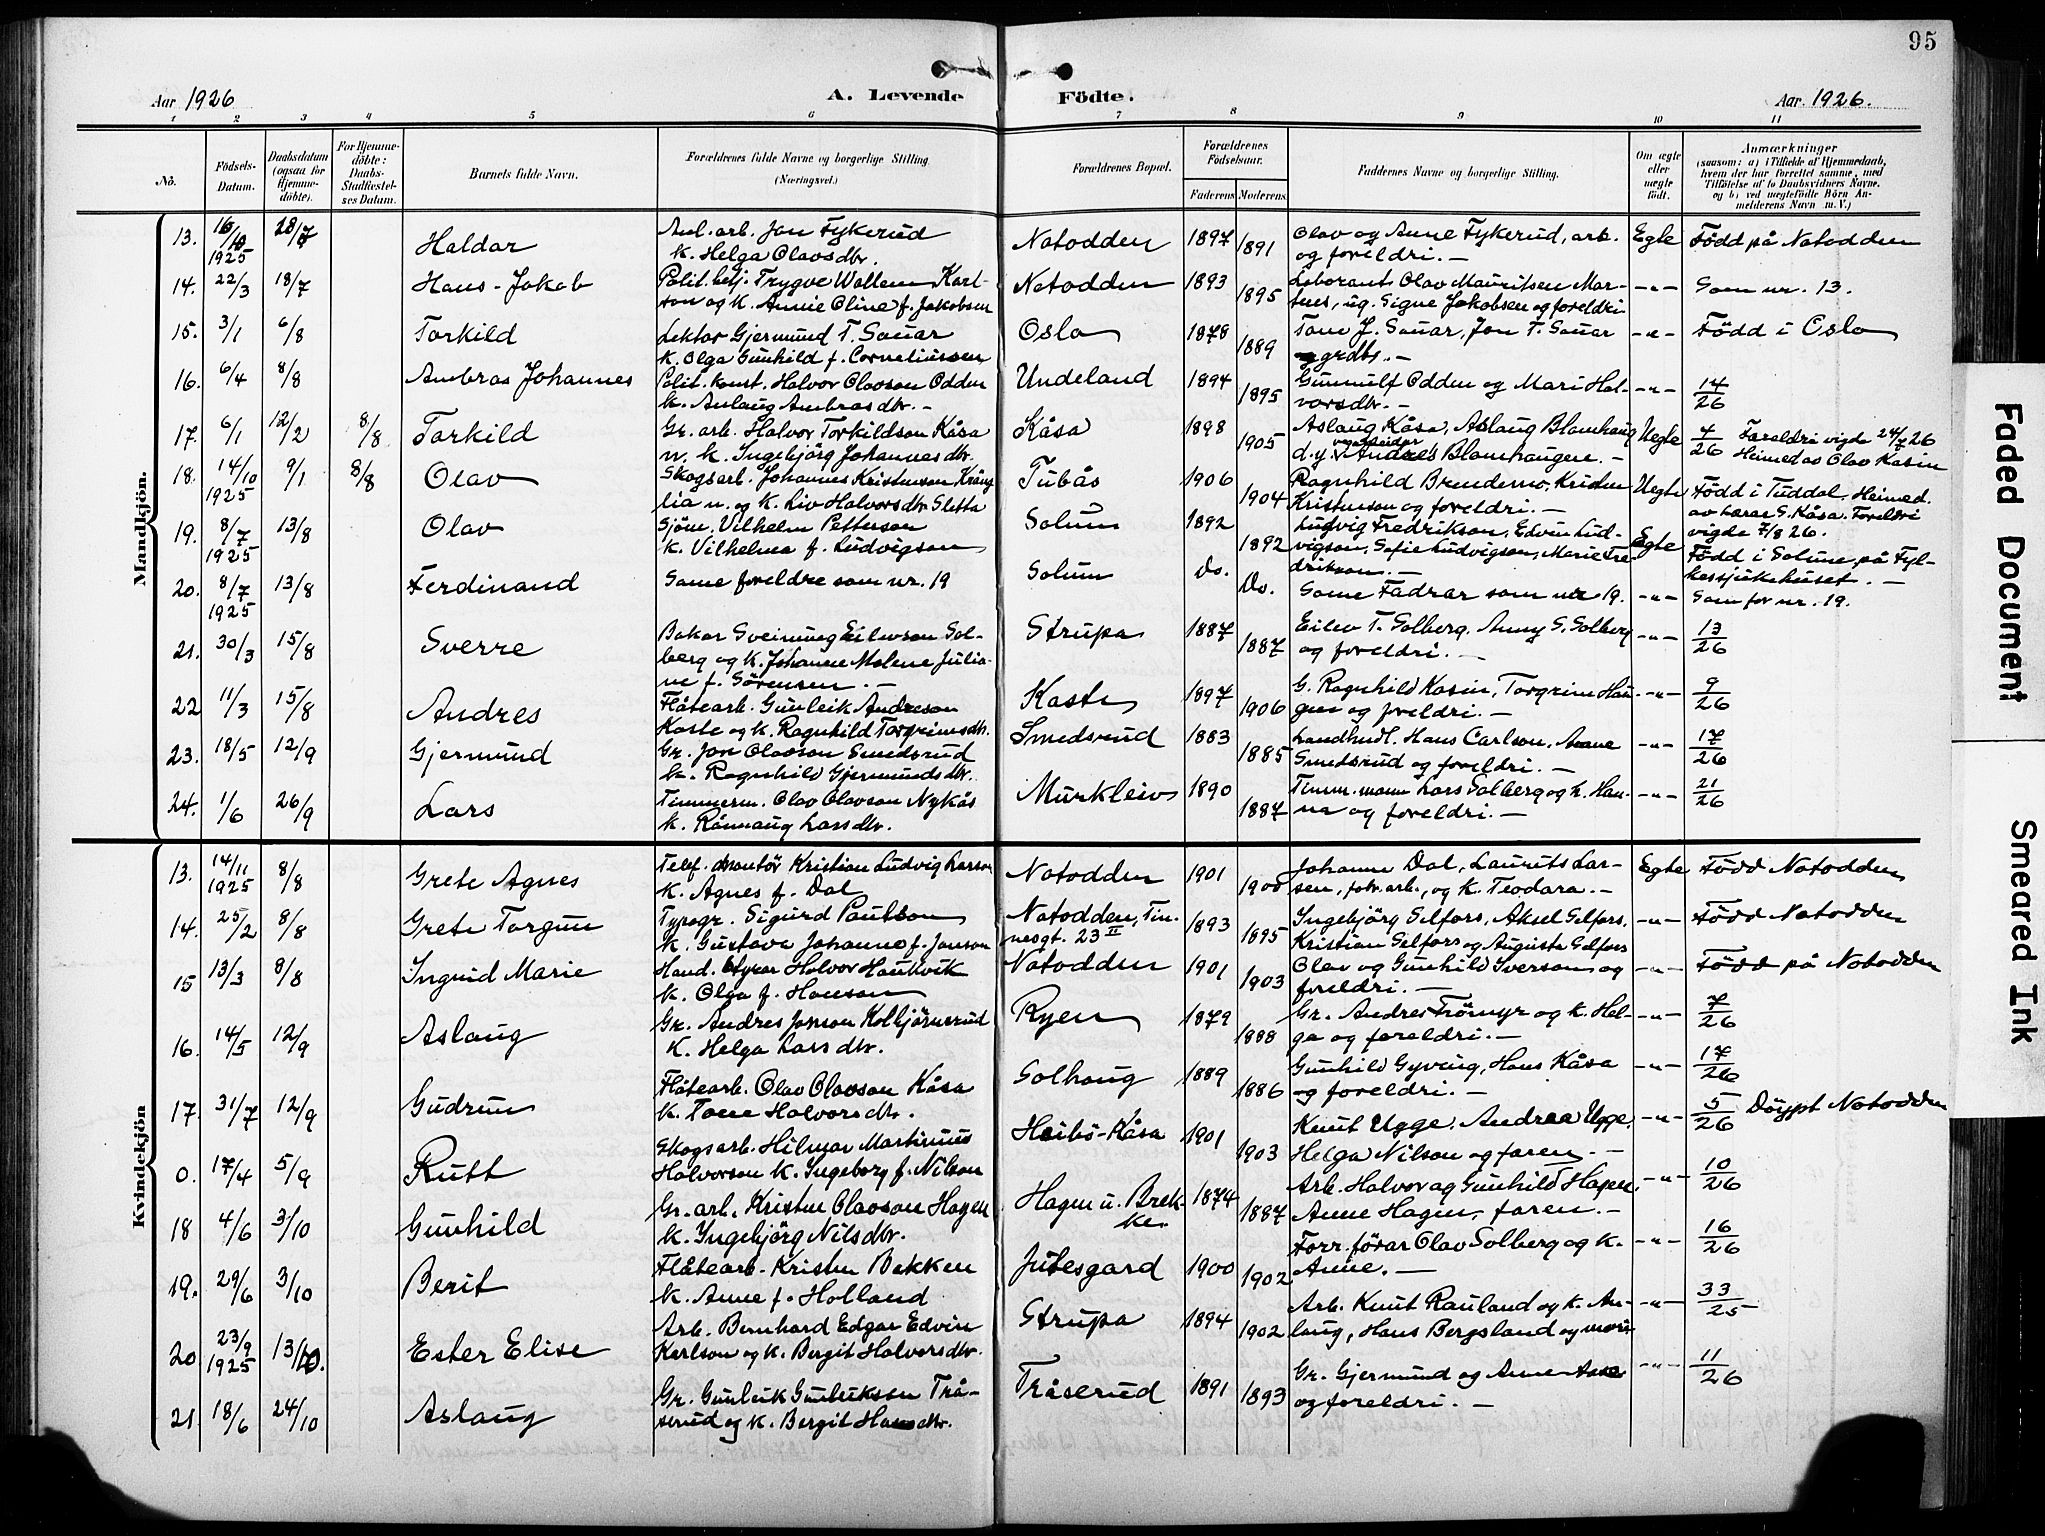 95
Aar 1926
A. Levende Födte.
Aar. 1926.
1 2 3 4 5 6 7 8 9 10 11
No.
Födsels-Datum.
Daabsdatum (ogsaa for Hjemme-döbte).
For Hjemme-döbte: Daabs-Stadfæstel-ses Datum.
Barnets fulde Navn.
Forældrenes fulde Navne og borgerlige Stilling.
(Næringsvei.)
Forældrenes Bopæl.
Forældrenes Födselsaar.
Faderens Moderens
Faddernes Navne og borgerlige Stilling.
Om ægte eller uægte födt.
Anmærkninger
(saasom: a) i Tilfælde af Hjemmedaab,
hvem der har forrettet samme, med
Tilföielse af to Daabsvidners Navne,
og b) ved uægtefödte Börn An-
melderens Navn m. V.)
Mandkjön.
13. 16/10 1925 28/7 Haldor
Anl. arb. Jon Fykerud
k. Helga Olavsdtr.
Notodden 1897 1891
Olav og Anne Fykerud, arb.
og foreldri. —
Egte Född på Notodden
14. 22/3 18/7 Hans-Jakob
Polit.betj. Trygve Wollem Karl-
son og k. Annie Oline f. Jakobsen
Notodden 1893 1895
Laborant Olav Mauritsen Mar-
tens, ug. Signe Jakobsen og foreldri
-"- Som nr. 13.
15. 3/1 6/8 Torkild
Lektor Gjermund T. Sauar
k. Olga Gunhild f. Corneliussen
Oslo 1878 1889
Tone J. Sauar, Jon T. Sauar
grdbr. —
-"- Född i Oslo
16. 6/4 8/8 Ambros Johannes
Polit. konst. Halvor Olavson Odden
k. Aslaug Ambrosdtr. —
Undeland 1894 1895
Gunnulf Odden og Mari Hal-
vorsdtr. —
-"- 14/26
17. 6/1 12/2 8/8 Torkild
Gr. arb. Halvor Torkildson Kåsa
u. k. Ingebjörg Johannesdtr.
Kåsa 1898 1905
Aslaug Kåsa, Aslaug Blomhaug
d.y. Andres Blomhaugen. —
Uegte 4/26 Foreldri vigde 24/7 26
Heimedav Olav Kasin
18. 14/10 1925 9/1 8/8 Olav
Skogsarb. Johannes Kristenson Kräng
lia u. og k. Liv Halvorsdtr Sletta
Tubås 1906 1904
Ragnhild Brendemo, Kristen
Kristenson og foreldri. —
Uegte Född i Tuddal. Heimed.
av lærar G. Kåsa. Foreldri
vigde 7/8 26.
19. 8/7 1925 13/8 Olav
Sjöm. Vilhelm Petterson
k. Vilhelma f. Ludvigson
Solum 1892 1892
Ludvig Fredrikson, Edvin Lud-
vigson, Sofie Ludvigson, Marie Fre
drikson. —
Egte Född i Solum på Fyl-
kessjukehuset. —
20. 8/7 1925 13/8 Ferdinand
Same foreldre som nr. 19
Solum Do. Do.
Same Fadrar som nr 19.
-"- Som for nr. 19.
21. 30/3 15/8 Sverre
Bakar Sveinung Eilevson Sol-
berg og k. Johanne Malene Julia-
ne f. Sörensen. —
Strupa 1887 1887
Eilev T. Solberg, Anny S. Solberg
og foreldri. —
-"- 13/26
22 11/3 15/8 Andres
Flåtearb. Gunleik Andreson
Kaste og k. Ragnhild Torgrimsdtr.
Kaste 1897 1906
G. Ragnhild Kasin, Torgrim Hau-
gen og foreldri. —
-"- 9/26
23. 18/5 12/9 Gjermund
Gr. Jon Olavson Smedsrud
k. Ragnhild Gjermundsdtr.
Smedsrud 1883 1885
Landhndl. Hans Carlson, Anne
Smedsrud og foreldri. —
-"- 17/26
24. 1/6 26/9 Lars
Timmerm. Olav Olavson Nykås
k. Rånnaug Larsdtr.
Murkleiv 1890 1887
Timm.mann Lars Solberg og k. Han-
na og foreldri. —
-"- 21/26
Kvindekjön
13. 14/11 1925 8/8 Grete Agnes
Telef. Montör Kristian Ludvig Larson
k. Agnes f. Dal
Notodden 1901 1900
Johanne Dal, Lauritz Lar-
sen, fabr. arb., og k. Teodara. —
Egte Född Notodden
14. 25/2 8/8 Grete Torgun
Typogr. Sigurd Paulson
k. Gustava Johanne f. Jonson
Notodden, Tin-
nesgt. 23 II 1893 1895
Ingebjörg Selfors, Aksel Selfors,
Kristian Selfors og Augusta Selfors
-"- Född Notodden
15 13/3 8/8 Ingrid Marie
Hand. styrar Halvor Haukvik
k. Olga f. Hanson
Notodden 1901 1903
Olav og Gunhild Iverson og
foreldri. —
-"- Född på Notodden
16. 14/5 12/9 Aslaug
Gr. Andres Jonson Kolbjörnsrud
k. Helga Larsdtr.
Ryen 1879 1888
Gr. Andres Frömyr og k. Hel-
ga og foreldri. —
-"- 7/26
17. 31/7 12/9 Gudrun
Flåtearb. Olav Olavson Kåsa
k. Tone Halvorsdtr.
Solhaug 1889 1886
Gunhild Gyving, Hans Kåsa
og foreldri. —
-"- 17/26
0. 17/4 5/9 Rutt
Skogsarb. Hilmar Martinius
Halvorson k. Ingeborg f. Nilson
Heibö-Kåsa 1901 1903
Knut Ugge, Andrea Ugge,
Helga Nilson og faren. —
-"- 5/26 Döypt Notodden
18 4/6 3/10 Gunhild
Gr. arb. Kristen Olavson Hagen
k. Ingebjörg Nilsdtr.
Hagen u. Brek-
ke 1874 1887
Arb. Halvor og Gunhild Hagen,
Anne Hagen, faren. —
-"- 10/26
19. 29/6 3/10 Berit
Flåtearb. Kristen Bekken
k. Anne f. Holland
Jutesgard 1900 1902
Forr.förar Olav Solberg og k.
Anne. —
-"- 16/26
20 23/9 1925 13/10. Ester Elise
Arb. Bernhard Edgar Edvin
Karlson og k. Bergit Halvorsdtr.
Strupa 1894 1902
Arb. Knut Rauland og k. As-
laug, Hans Bergsland og mori
-"- 33/25
21. 18/6 24/10 Aslaug
Gr. Gunleik Gunleikson Trå-
serud og k. Bergit Hansdtr.
Tråserud 1891 1893
Gr. Gjermund og Anne Aase
og foreldri. —
-"- 11/26
Faded Document
Smeared Ink